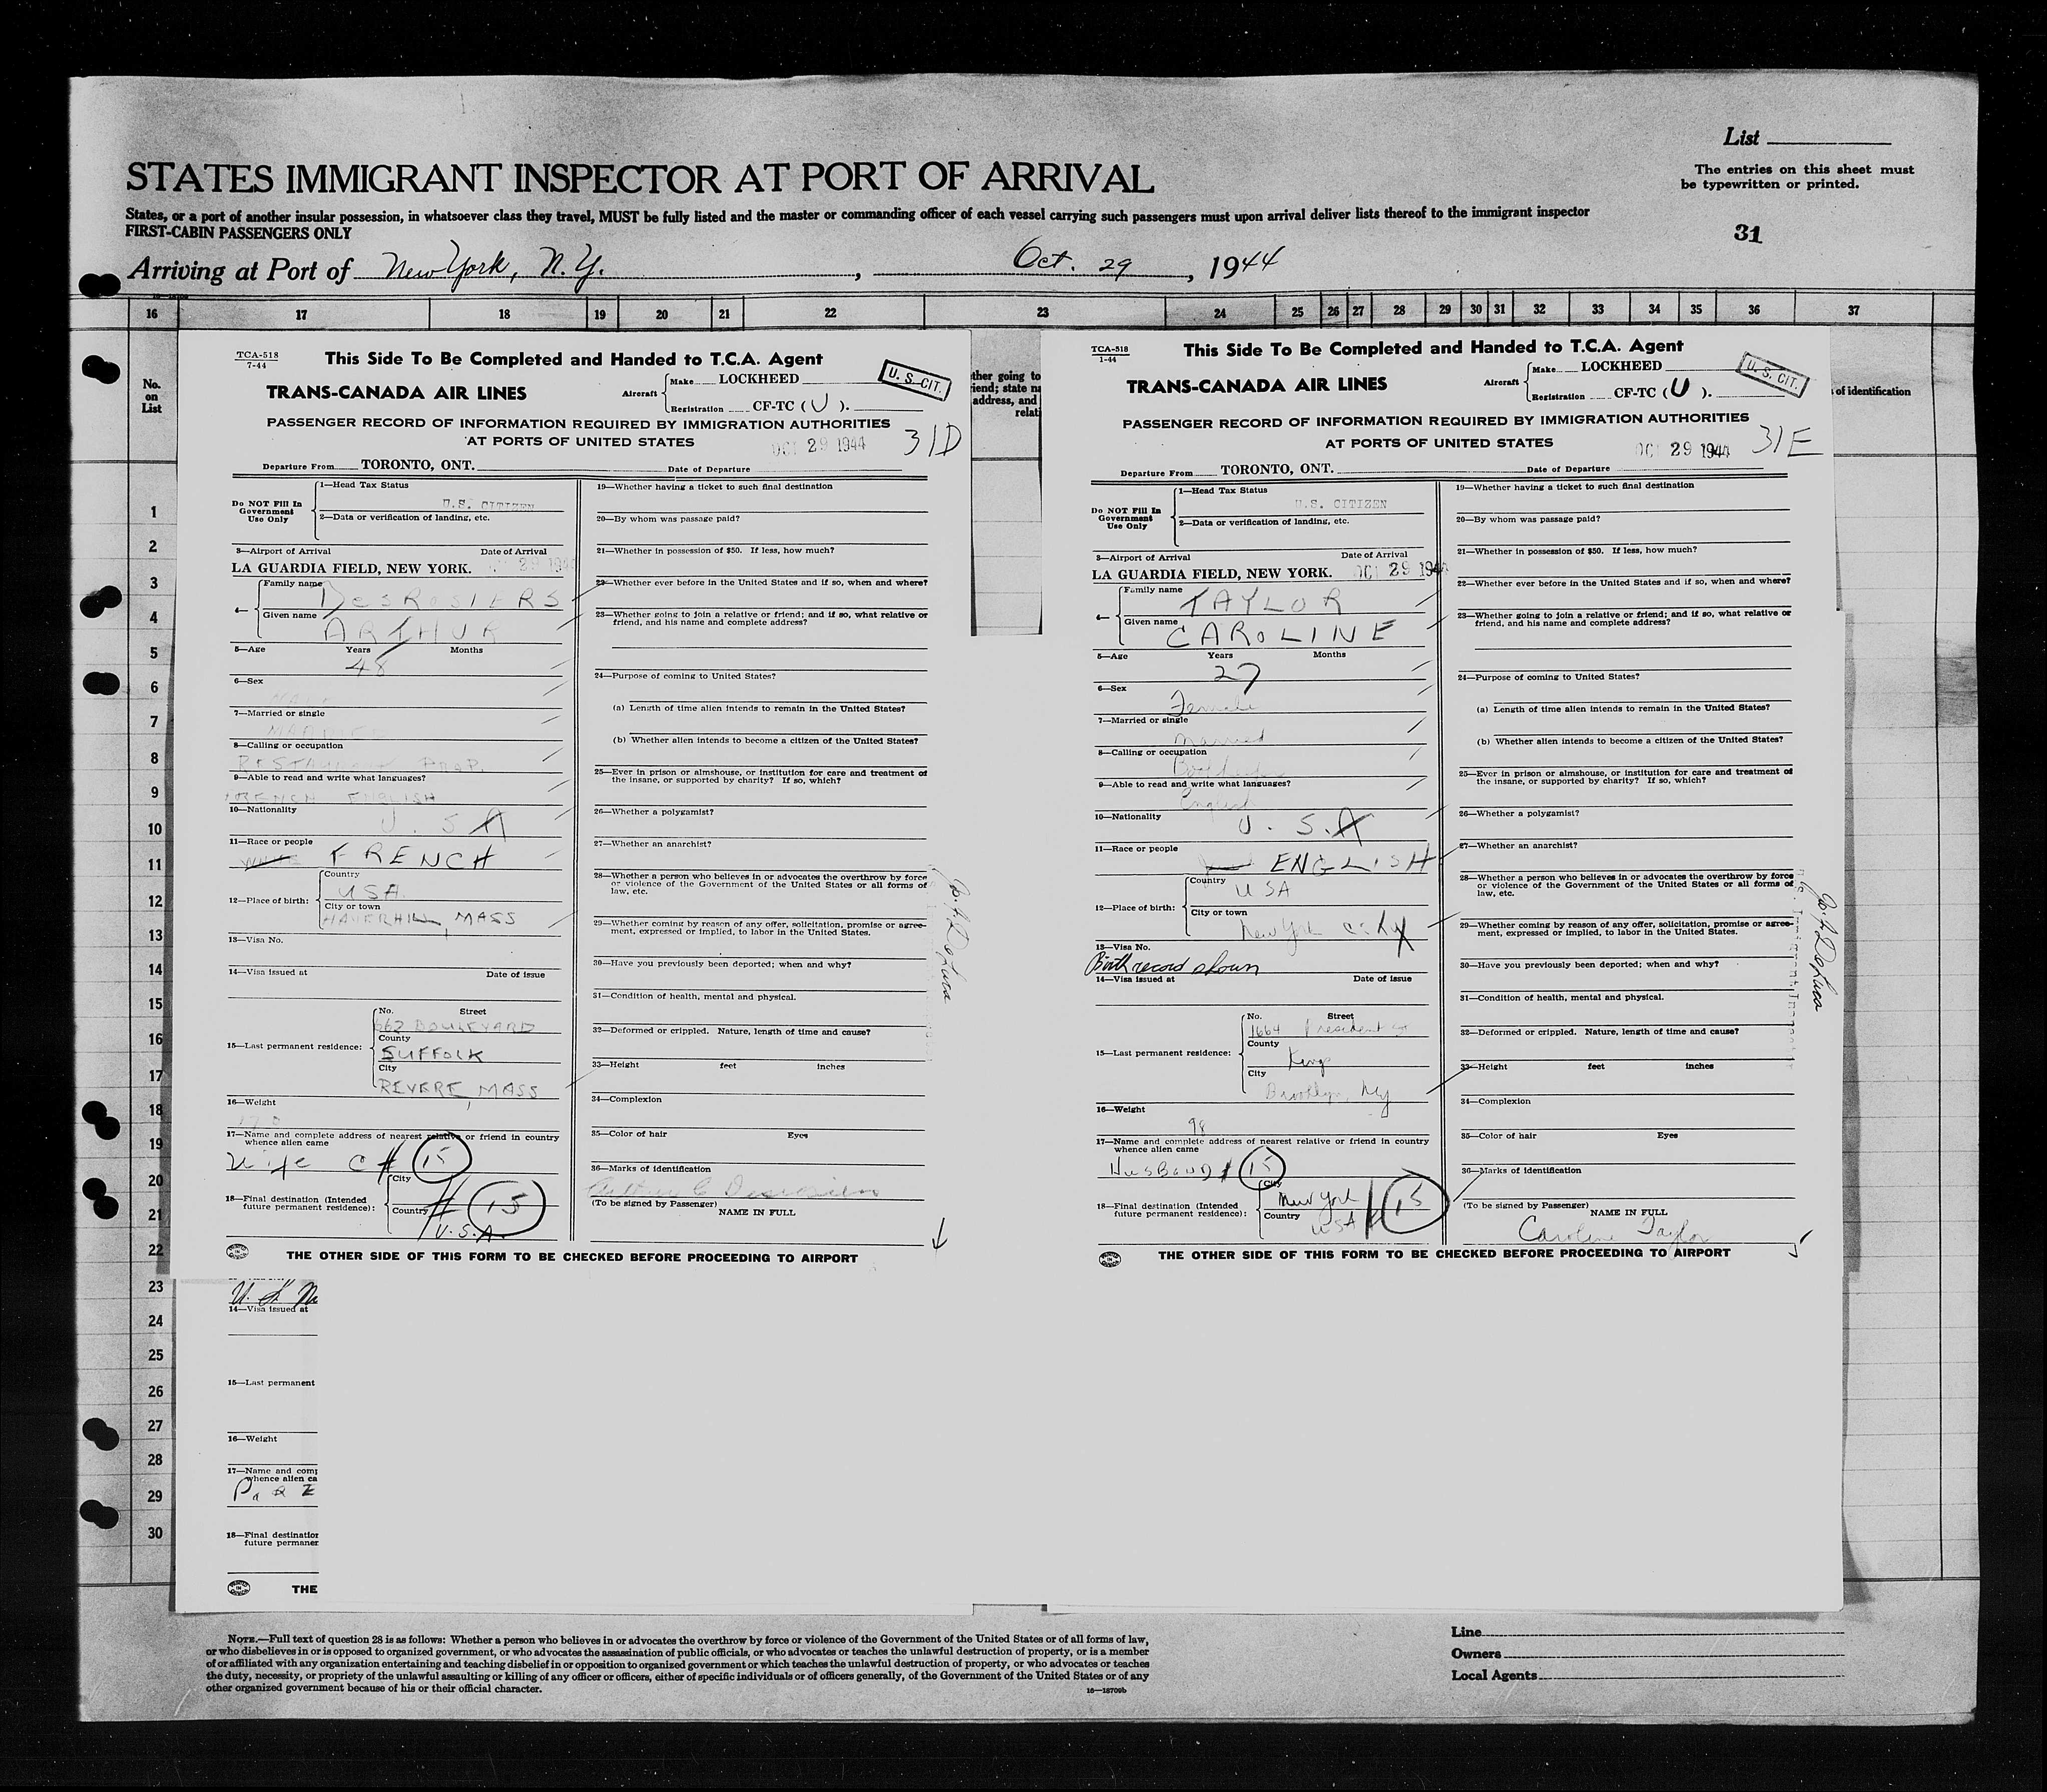 List
The entries on this sheet must
be typewritten or printed.
STATES IMMIGRANT INSPECTOR AT PORT OF ARRIVAL
States, or a port of another insular possession, in whatsoever class they travel, MUST be fully listed and the master or commanding officer of each vessel carrying such passengers must upon arrival deliver lists thereof to the immigrant inspector
FIRST-CABIN PASSENGERS ONLY
31
Arriving at Port of New York, N.Y. , Oct. 29 , 1944
16 17 18 19 20 21 22 23 24 25 26 27 28 29 30 31 32 33 34 35 36 37
No.
on
List
1
2
3
4
5
6
7
8
9
10
11
12
13
14
15
16
17
18
19
20
21
22
23
24
25
26
27
28
29
30
TCA-518
7-44
This Side To Be Completed and Handed to T.C.A. Agent
U. S. CIT.
TRANS-CANADA AIR LINES
Aircraft
Make LOCKHEED
Registration CF-TC ( U ).
PASSENGER RECORD OF INFORMATION REQUIRED BY IMMIGRATION AUTHORITIES
AT PORTS OF UNITED STATES
OCT 29 1944
31D
Departure From TORONTO, ONT. Date of Departure
Do NOT Fill In
Government
Use Only
1—Head Tax Status
U.S. CITIZEN
2—Data or verification of landing, etc.
3—Airport of Arrival Date of Arrival
LA GUARDIA FIELD, NEW YORK. OCT 29 1944
4—
Family name DESROSIERS
Given name ARTHUR
5—Age Years Months
48
6—Sex
MALE
7—Married or single
MARRIED
8—Calling or occupation
RESTAURANT PROP.
9—Able to read and write what languages?
FRENCH ENGLISH
10—Nationality
U.S.A
11—Race or people
WHITE FRENCH
12—Place of birth:
Country
USA
City or town
HAVERHILL, MASS
13—Visa No.
14—Visa issued at Date of issue
15—Last permanent residence:
No. Street
662 BOULEVARD
County
SUFFOLK
City
REVERE, MASS
16—Weight
170
17—Name and complete address of nearest relative or friend in country
whence alien came
Wife C # 15
18—Final destination (Intended
future permanent residence):
City
Country # 15
U.S.A.
19—Whether having a ticket to such final destination
20—By whom was passage paid?
21—Whether in possession of $50. If less, how much?
22—Whether ever before in the United States and if so, when and where?
23—Whether going to join a relative or friend; and if so, what relative or
friend, and his name and complete address?
24—Purpose of coming to United States?
(a) Length of time alien intends to remain in the United States?
(b) Whether alien intends to become a citizen of the United States?
25—Ever in prison or almshouse, or institution for care and treatment of
the insane, or supported by charity? If so, which?
26—Whether a polygamist?
27—Whether an anarchist?
28—Whether a person who believes in or advocates the overthrow by force
or violence of the Government of the United States or all forms of
law, etc.
29—Whether coming by reason of any offer, solicitation, promise or agree-
ment, expressed or implied, to labor in the United States.
30—Have you previously been deported; when and why?
31—Condition of health, mental and physical.
32—Deformed or crippled. Nature, length of time and cause?
33—Height feet inches
34—Complexion
35—Color of hair Eyes
36—Marks of identification
Arthur C Desrosiers
(To be signed by Passenger)
NAME IN FULL
THE OTHER SIDE OF THIS FORM TO BE CHECKED BEFORE PROCEEDING TO AIRPORT
ther going to
iend; state na
address, and
relati
TCA-518
1-44
This Side To Be Completed and Handed to T.C.A. Agent
U. S. CIT.
TRANS-CANADA AIR LINES
Aircraft
Make LOCKHEED
Registration CF-TC ( U ).
PASSENGER RECORD OF INFORMATION REQUIRED BY IMMIGRATION AUTHORITIES
AT PORTS OF UNITED STATES
OCT 29 1944
31E
Departure From TORONTO, ONT. Date of Departure
Do NOT Fill In
Government
Use Only
1—Head Tax Status
U.S. CITIZEN
2—Data or verification of landing, etc.
3—Airport of Arrival Date of Arrival
LA GUARDIA FIELD, NEW YORK. OCT 29 1944
4—
Family name TAYLOR
Given name CAROLINE
5—Age Years Months
27
6—Sex
Female
7—Married or single
Married
8—Calling or occupation
9—Able to read and write what languages?
English
10—Nationality
U.S.A
11—Race or people
ENGLISH
12—Place of birth:
Country
USA
City or town
New York City
13—Visa No.
Birth record shown
14—Visa issued at Date of issue
15—Last permanent residence:
No. Street
1664 President St
County
Kings
City
Brooklyn, NY
16—Weight
98
17—Name and complete address of nearest relative or friend in country
whence alien came
HUSBAND # 15
18—Final destination (Intended
future permanent residence):
City
New York # 15
Country
USA
19—Whether having a ticket to such final destination
20—By whom was passage paid?
21—Whether in possession of $50. If less, how much?
22—Whether ever before in the United States and if so, when and where?
23—Whether going to join a relative or friend; and if so, what relative or
friend, and his name and complete address?
24—Purpose of coming to United States?
(a) Length of time alien intends to remain in the United States?
(b) Whether alien intends to become a citizen of the United States?
25—Ever in prison or almshouse, or institution for care and treatment of
the insane, or supported by charity? If so, which?
26—Whether a polygamist?
27—Whether an anarchist?
28—Whether a person who believes in or advocates the overthrow by force
or violence of the Government of the United States or all forms of
law, etc.
29—Whether coming by reason of any offer, solicitation, promise or agree-
ment, expressed or implied, to labor in the United States.
30—Have you previously been deported; when and why?
31—Condition of health, mental and physical.
32—Deformed or crippled. Nature, length of time and cause?
33—Height feet inches
34—Complexion
35—Color of hair Eyes
36—Marks of identification
(To be signed by Passenger)
NAME IN FULL
Caroline Taylor
THE OTHER SIDE OF THIS FORM TO BE CHECKED BEFORE PROCEEDING TO AIRPORT
Immigrant Inspector
of identification
14—Visa issued at
15—Last permanent
16—Weight
17—Name and comp
whence alien ca
18—Final destination
future permaner
THE
NOTE.—Full text of question 28 is as follows: Whether a person who believes in or advocates the overthrow by force or violence of the Government of the United States or of all forms of law,
or who disbelieves in or is opposed to organized government, or who advocates the assassination of public officials, or who advocates or teaches the unlawful destruction of property, or is a member
of or affiliated with any organization entertaining and teaching disbelief in or opposition to organized government or which teaches the unlawful destruction of property, or who advocates or teaches
the duty, necessity, or propriety of the unlawful assaulting or killing of any officer or officers, either of specific individuals or of officers generally, of the Government of the United States or of any
other organized government because of his or their official character.
16—18709b
Line
Owners
Local Agents